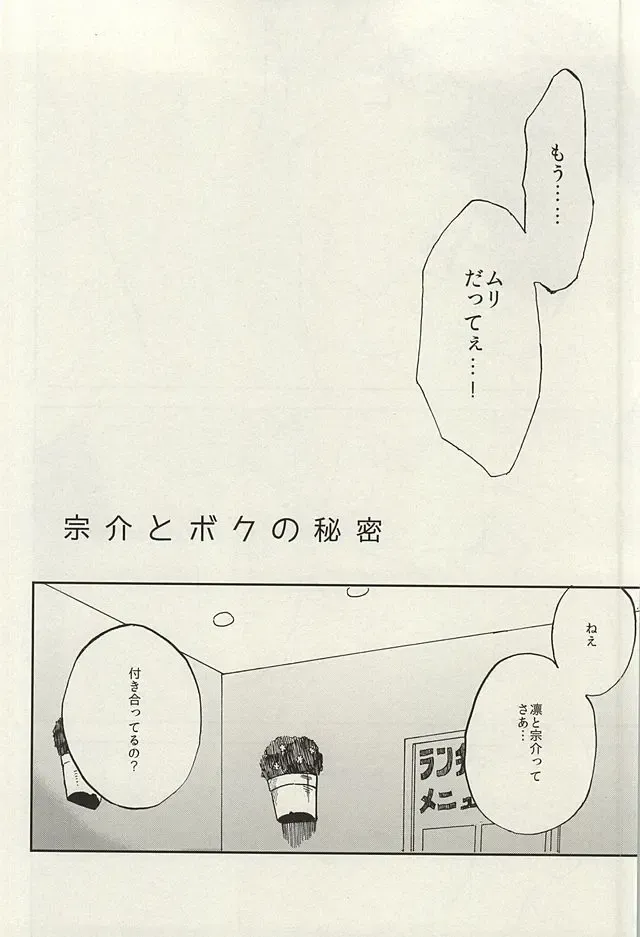 もう……
ムリ
だってぇ…！
宗介とボクの秘密
ねえ
凛と宗介って
さあ…
ランチ
メニュ
付き合ってるの？